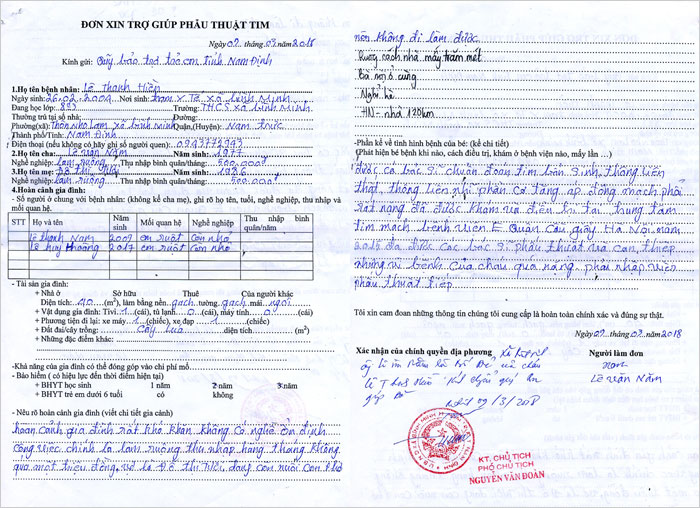 ĐƠN XIN TRỢ GIÚP PHẪU THUẬT TIM
Ngày 09 tháng 03 năm 2018
Kính gửi: Quỹ bảo trợ trẻ em tỉnh Nam Định
1.Họ tên bệnh nhân: Lê Thanh Hiệp
Ngày sinh: 26.02.2004 Nơi sinh: trạm y tế xã bình minh
Đang học lớp: 8B3 Trường: THCS xã bình minh
Thường trú tại số nhà: Đường:
Phường(xã): Thôn nho lâm xã bình minh Quận,(Huyện): Nam trực
Thành phố/Tỉnh: Nam Định
Điện thoại (nếu không có hãy ghi số người quen): 0943772943
2.Họ tên cha: Lê Văn Năm Năm sinh: 1977
Nghề nghiệp: làm ruộng Thu nhập bình quân/tháng: 500.000đ
3.Họ tên mẹ: Năm sinh: 1986
Nghề nghiệp: làm ruộng Thu nhập bình quân/tháng: 500.000đ
4.Hoàn cảnh gia đình:
- Số người ở chung với bệnh nhân: (không kể cha mẹ), ghi rõ họ tên, tuổi, nghề nghiệp, thu nhập và mối quan hệ.
STT Họ và tên Năm sinh Mối quan hệ Nghề nghiệp Thu nhập bình quân/năm
Lê thanh Nam 2007 em ruột còn nhỏ
Lê huy Hoàng 2017 em ruột còn nhỏ
- Tài sản gia đình:
+ Nhà ở Sở hữu Thuê Của người khác
Diện tích: 40 (m²), làm bằng nền gạch tường gạch mái ngói
+ Vật dụng gia đình: Tivi 1 (cái), tủ lạnh 0 (cái), máy tính 0 (cái)
+ Phương tiện đi lại: xe máy 1 (chiếc), xe đạp 1 (chiếc)
+ Đất đai/cây trồng: Cây lúa diện tích (m²)
+ Những đặc điểm khác:
-Khả năng của gia đình có thể đóng góp vào chi phí mổ.
- Bảo hiểm ( có hiệu lực đến thời điểm hiện tại)
+ BHYT học sinh 1 năm 2 năm 3 năm
+ BHYT trẻ em dưới 6 tuổi có không
- Nêu rõ hoàn cảnh gia đình (viết chi tiết gia cảnh)
hoàn cảnh gia đình rất khó khăn không có nghề ổn định
Công việc chính là làm ruộng thu nhập hàng tháng không
quá một triệu đồng, vợ là Đỗ thị Mỗi, đang còn nuôi con nhỏ
nên không đi làm được
Ruộng cách nhà mấy trăm mét
Bà nội ở cùng
Nghỉ hè
HN - nhà 120km
-Phần kể về tình hình bệnh của bé: (kể chi tiết)
(Phát hiện bé bệnh khi nào, cách điều trị, khám ở bệnh viện nào, mấy lần …)
được các bác sĩ chuẩn đoán tim bẩm sinh, thông liên
thất, thông liên nhĩ phần có tăng áp động mạch phổi
rất nặng đã được khám và điều trị tại trung tâm
tim mạch bệnh viện E Quận Cầu giấy Hà Nội. năm
2015 đã được các bác sĩ phẫu thuật và can thiệp
nhưng vì bệnh của cháu quá nặng phải nhập viện
phẫu thuật tiếp
Tôi xin cam đoan những thông tin chúng tôi cung cấp là hoàn toàn chính xác và đúng sự thật.
Ngày 09 tháng 03 năm 2018
Xác nhận của chính quyền địa phương
Người làm đơn
Năm
Lê Văn Năm
09/3/2018
KT. CHỦ TỊCH
PHÓ CHỦ TỊCH
NGUYỄN VĂN ĐOÀN